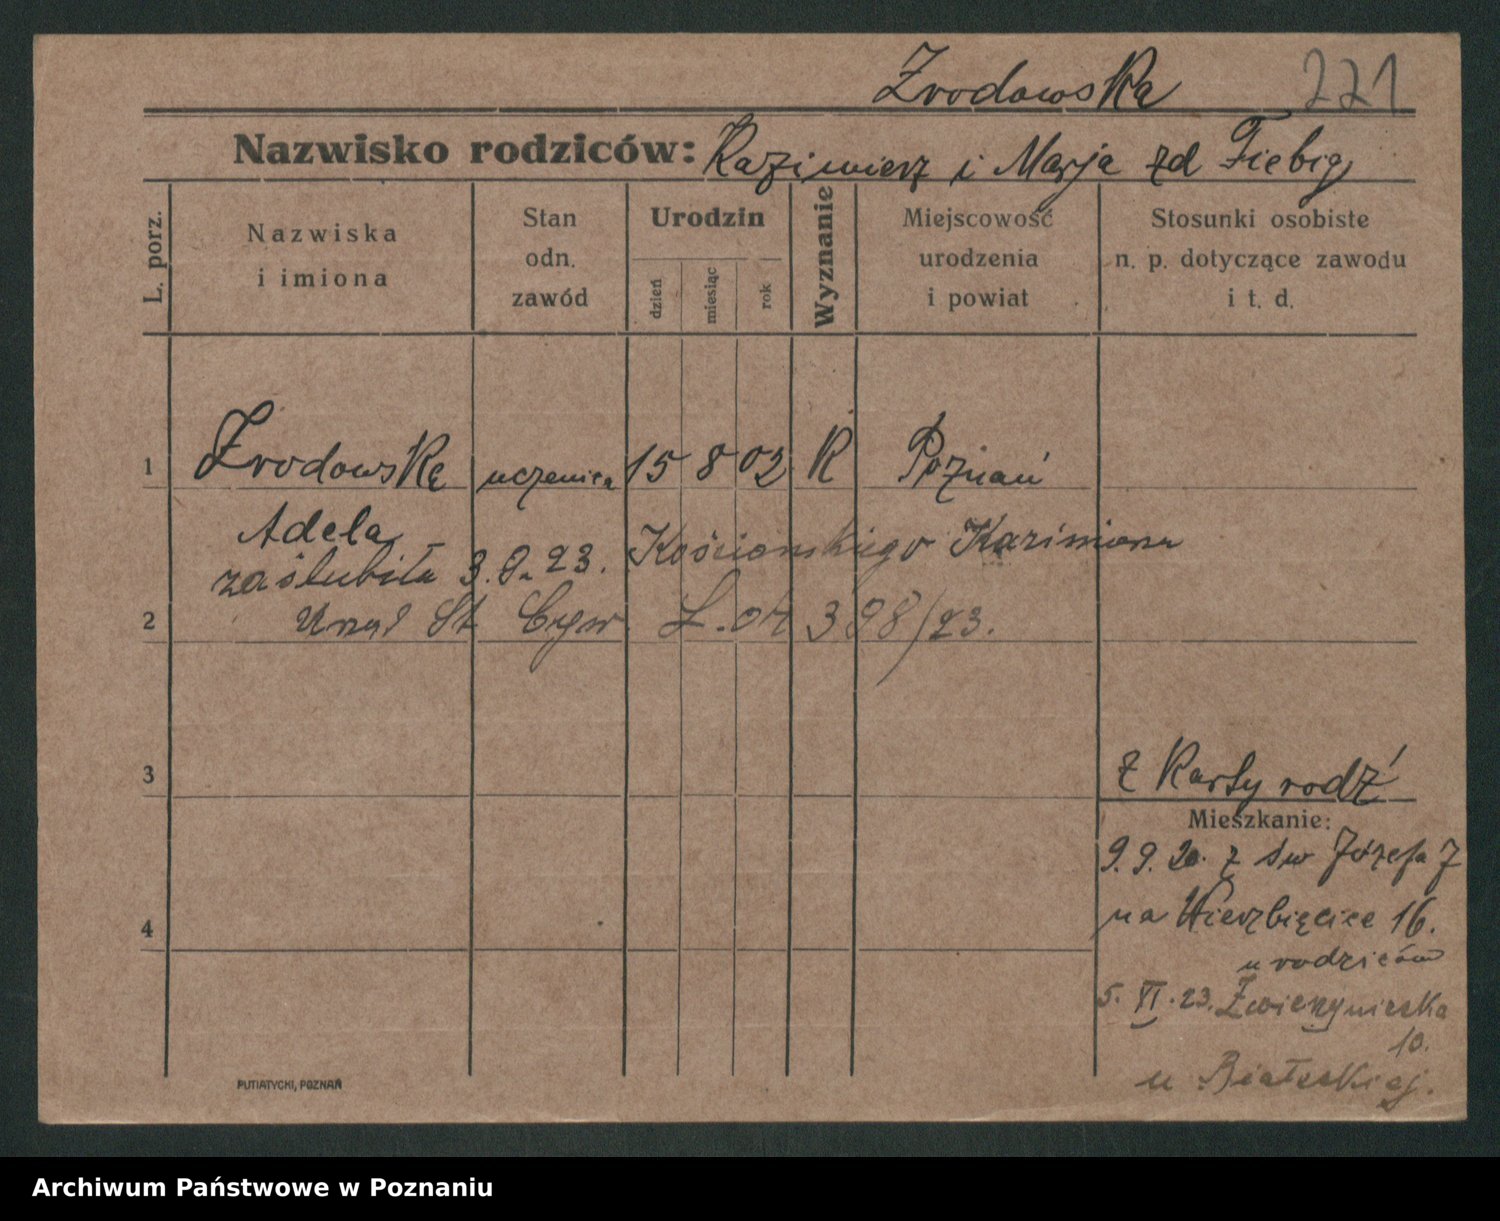 Zrodowska 221
Nazwisko rodziców: Kazimierz i Marja zd Fiebig
L. porz.
Nazwiska i imiona
Stan odn. zawód
Urodzin
dzień
miesiąc
rok
Wyznanie
Miejscowość urodzenia i powiat
Stosunki osobiste n. p. dotyczące zawodu i t. d.
1 Zrodowska uczenica 15 8 02 R Poznań
Adela
zaślubiła 3.9.23. Kościańskiego Kazimierza
2 Urząd St Cyw L. 398/23.
3
z Karty rodź
Mieszkanie:
9.9.20. z św Józefa 7
na Wierzbięcice 16.
4
u rodziców
5. VI. 23. Zwierzyniecka
10.
u Białeckiej.
PUTIATYCKI, POZNAŃ
Archiwum Państwowe w Poznaniu